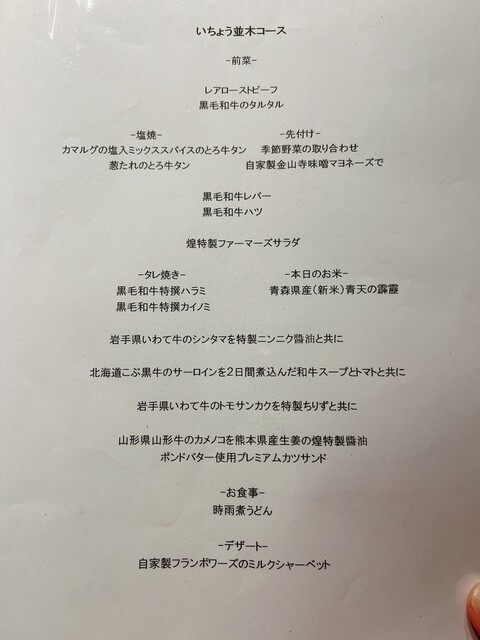 いちょう並木コース
-前菜-
レアローストビーフ
黒毛和牛のタルタル
-塩焼-
カマルグの塩入ミックススパイスのとろ牛タン
葱たれのとろ牛タン
-先付け-
季節野菜の取り合わせ
自家製金山寺味噌マヨネーズで
黒毛和牛レバー
黒毛和牛ハツ
煌特製ファーマーズサラダ
-タレ焼き-
黒毛和牛特撰ハラミ
黒毛和牛特撰カイノミ
-本日のお米-
青森県産(新米)青天の霹靂
岩手県いわて牛のシンタマを特製ニンニク醬油と共に
北海道こぶ黒牛のサーロインを2日間煮込んだ和牛スープとトマトと共に
岩手県いわて牛のトモサンカクを特製ちりずと共に
山形県山形牛のカメノコを熊本県産生姜の煌特製醬油
ポンドバター使用プレミアムカツサンド
-お食事-
時雨煮うどん
-デザート-
自家製フランボワーズのミルクシャーベット